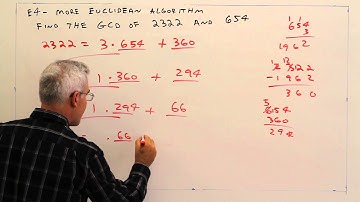 E4- MORE EUCLIDEAN ALGORITHM
FIND THE GCD OF 2322 AND 654
2322 = 3 · 654 + 360
1 · 360 + 294
1 · 294 + 66
· 66
1 1
654
3
1962
2322
- 1962
360
654
360
294